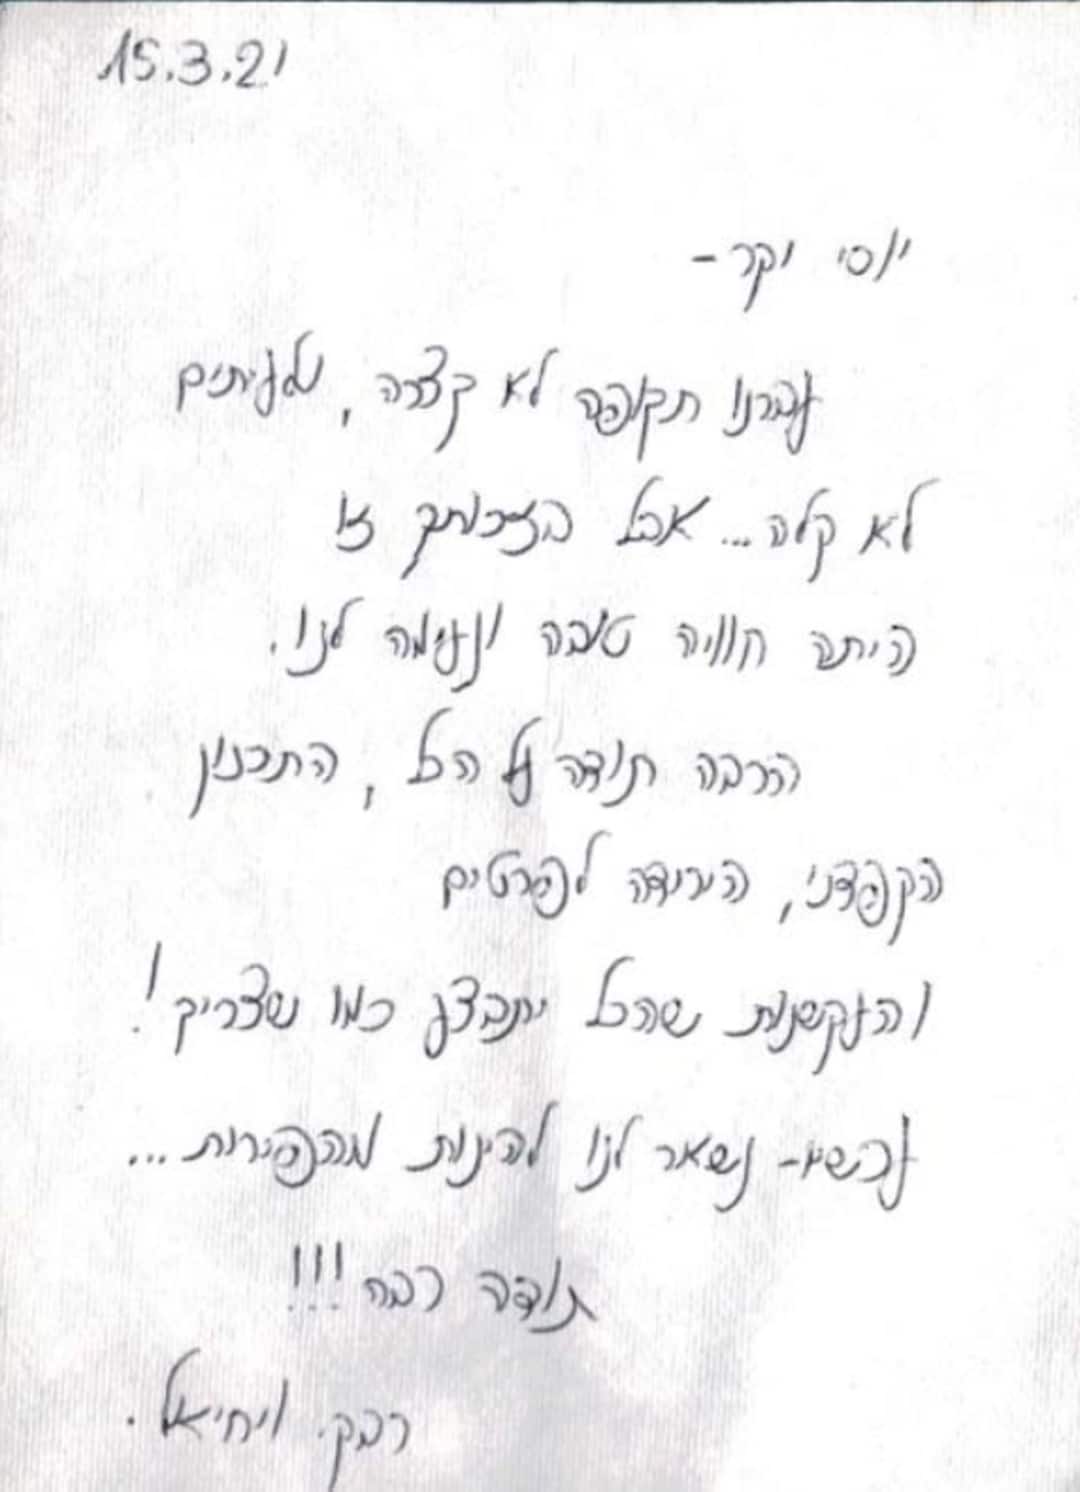 15.3.21
יוסי יקר -
עברנו תקופה לא קצרה, ולעיתים
לא קלה... אבל בזכותך זו
היתה חוויה טובה ונעימה לנו.
הרבה תודה על הכל, התכנון
הקפדני, הירידה לפרטים
והעקשנות שהכל יתבצע כמו שצריך!
עכשיו- נשאר לנו להינות מהפירות...
תודה רבה!!!
ויחיאל.